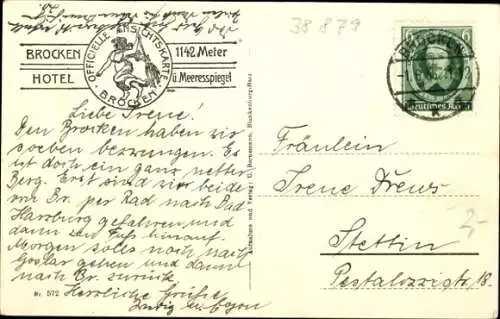 38879
BROCKEN
HOTEL
OFFICIELLE ANSICHTSKARTE
BROCKEN
1142 Meter
ü. Meeresspiegel
BROCKEN
6
Deutsches Reich
Liebe Irene!
Den Brocken haben wir
soeben bezwungen. Es
ist doch ein ganz netter
Berg. Erst sind wir beide
von Br. per Rad nach Bad
Harzburg gefahren und
dann zu Fuß hinauf.
Morgen solls noch nach
Goslar gehen und dann
nach Br. zurück
Herzliche Grüße
Nr. 572
Aufnahme und Verlag: Blankenburg-Harz
Fräulein
Irene Drews
Stettin
Pestalozzistr. 18.